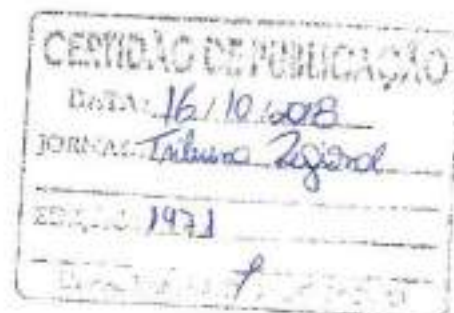 CERTIDÃO DE PUBLICAÇÃO
DATA: 16/10/2018
JORNAL: Tribuna Regional
EDIÇÃO: 1971